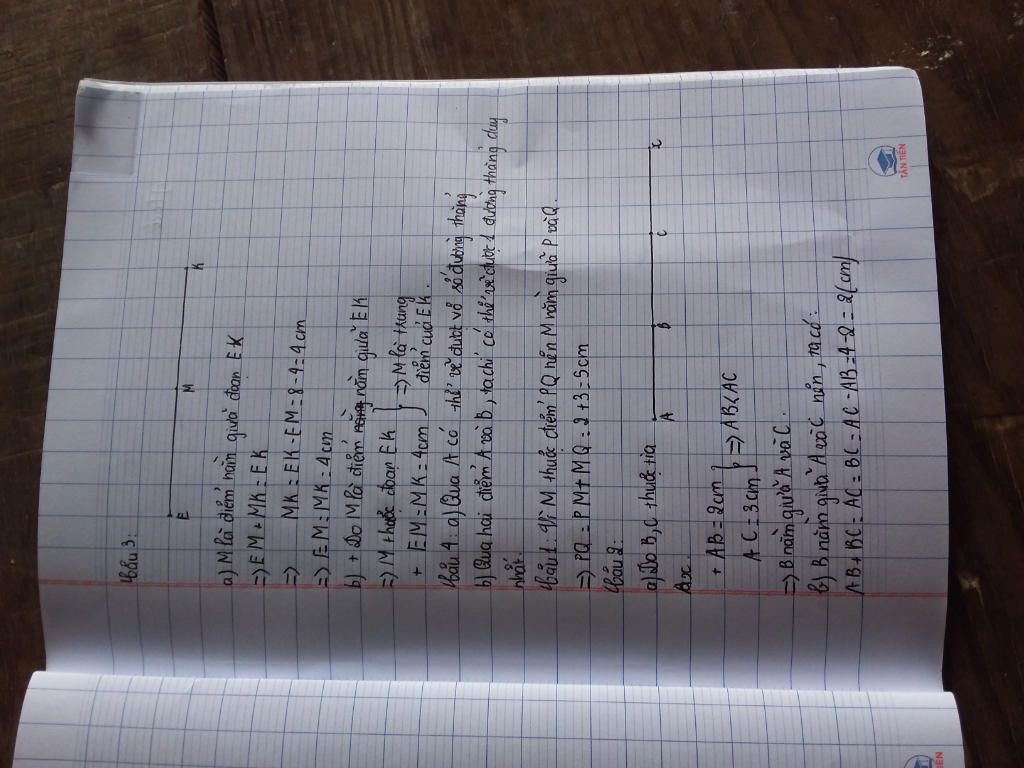 Câu 3:
E M K
a) M là điểm nằm giữa đoạn EK
=) EM + MK = EK
=) MK = EK - EM = 8 - 4 = 4 cm
=) EM = MK = 4 cm
b) + Do M là điểm nằm giữa EK
=) M thuộc đoạn EK
+ EM = MK = 4cm
=) M là trung
điểm của EK.
Câu 4: a) Qua A có thể vẽ được vô số đường thẳng
b) Qua hai điểm A và B, ta chỉ có thể vẽ được 1 đường thẳng duy
nhất.
Câu 1: Vì M thuộc điểm PQ nên M nằm giữa P và Q.
=) PQ = PM + MQ = 2 + 3 = 5 cm
Câu 2:
A B C x
a) Do B, C thuộc tia
Ax.
+ AB = 2cm
AC = 3cm
=) AB < AC
=) B nằm giữa A và C.
b) B nằm giữa A và C nên, ta có:
AB + BC = AC = BC = AC - AB = 4 - 2 = 2 (cm)
TÂN TIẾN